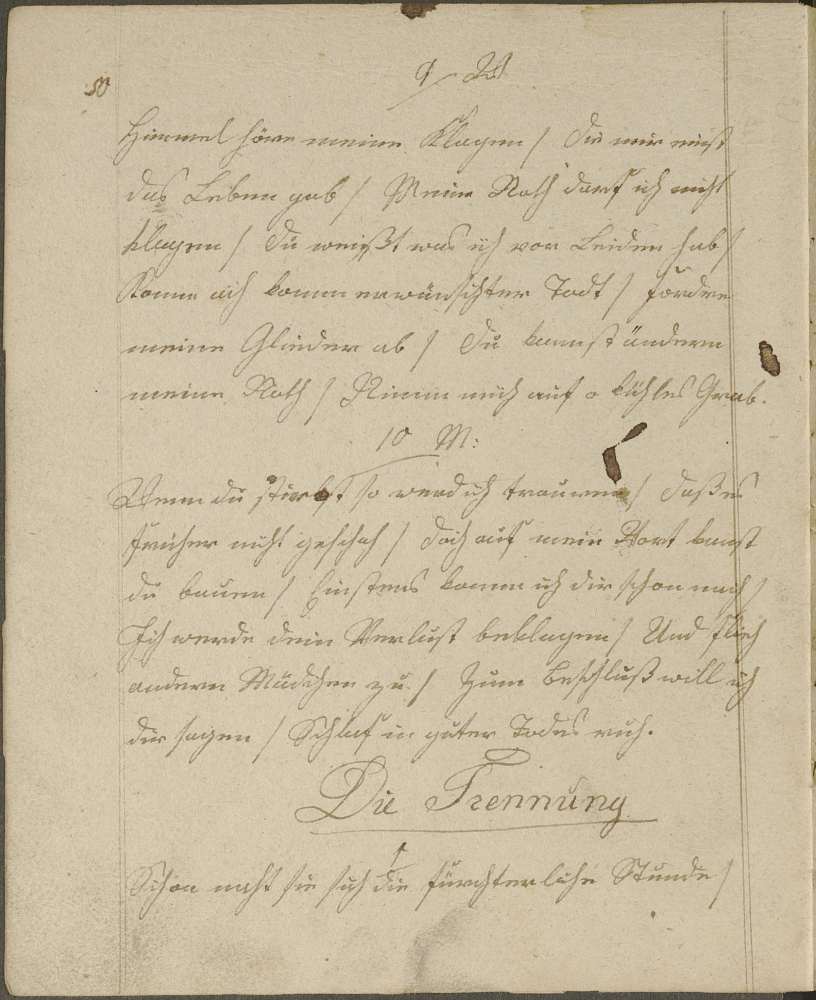 50
9 W
Himmel höre meine Klagen / Die mir einst
das Leben gab / Meine Noth darf ich nicht
klagen / Du weißt was ich vor Leiden hab /
Komm ach komm erwünschter Todt / fordre
meine Glieder ab / Du kannst ändern
meine Noth / Nimm mich auf o kühles Grab.
10 M:
Wenn du stirbst so werd ich trauren / Daß es
früher nicht geschah / Doch auf mein Wort kanst
du bauen / Einstens komm ich dir schon nach /
Ich werde dein Verlust beklagen / Und flieh
andern Mädchen zu. / Zum Beschluß will ich
dir sagen / Schlaf in guter Todes ruh.
Die Trennung
1
Schon naht sie sich die fürchterliche Stunde /